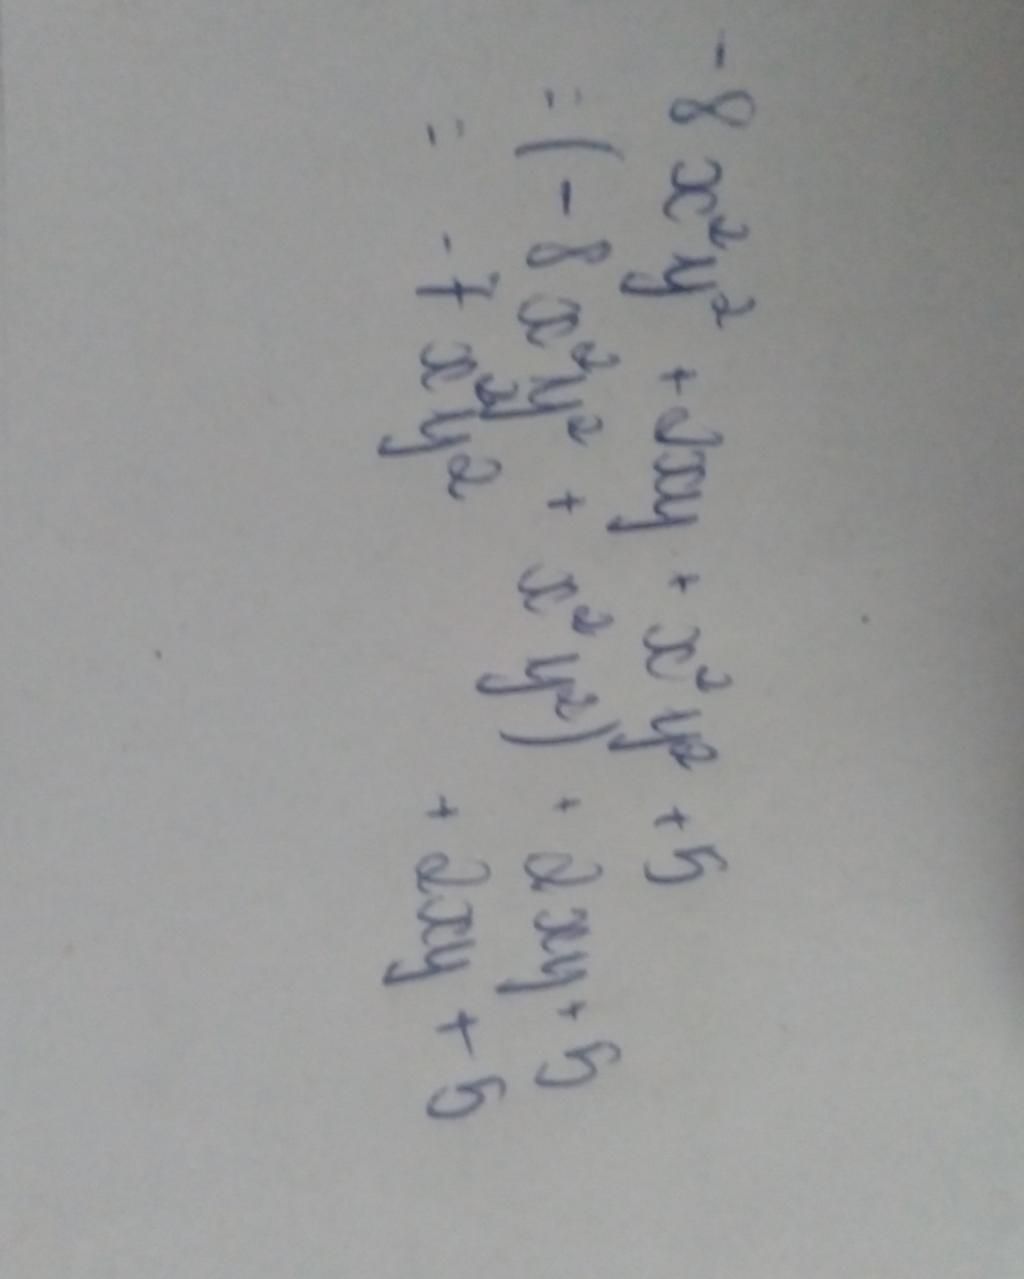 - 8 x²y² + 2xy + x²y² + 5
= ( - 8 x²y² + x²y² ) + 2xy + 5
= - 7 x²y² + 2xy + 5